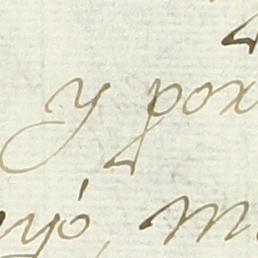 y por
yó, m